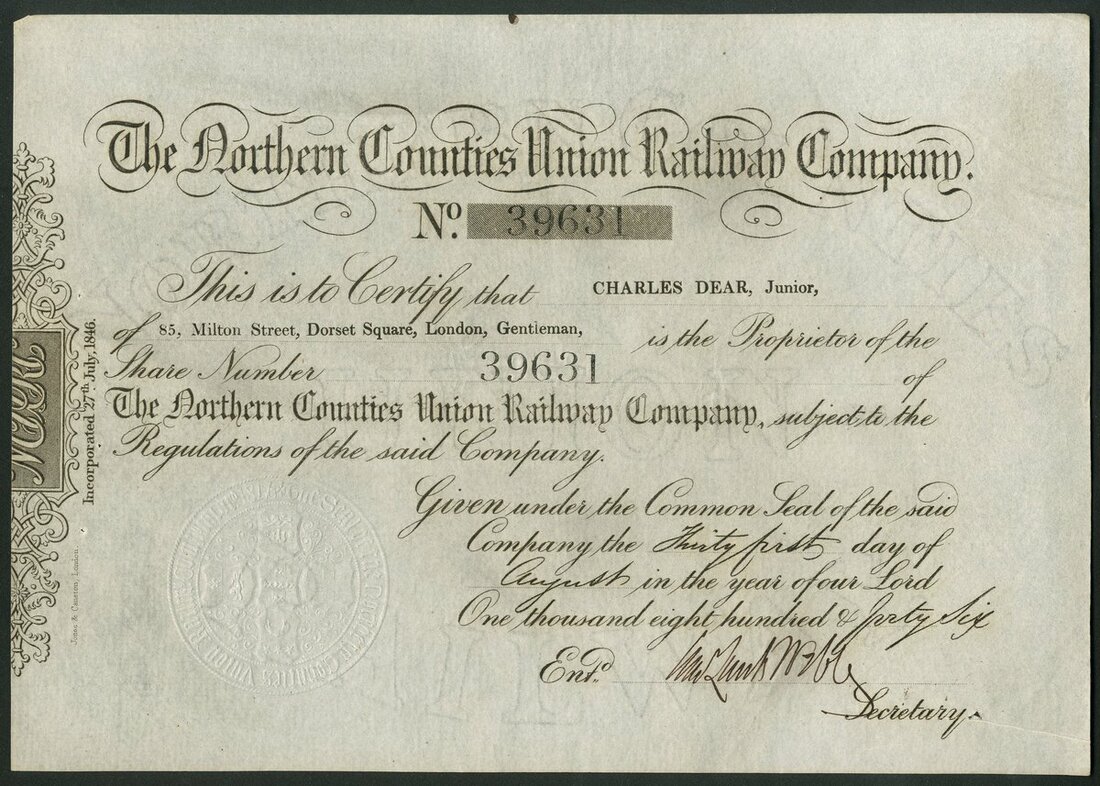 The Northern Counties Union Railway Company.
No. 39631
This is to Certify that CHARLES DEAR, Junior,
of 85, Milton Street, Dorset Square, London, Gentleman, is the Proprietor of the
Share Number 39631 of
The Northern Counties Union Railway Company, subject to the
Regulations of the said Company.
Given under the Common Seal of the said
Company the Thirty first day of
August in the year of our Lord
One thousand eight hundred & forty Six
Entd.
Secretary.
Incorporated 27th July, 1846.
Jones & Causton, London.